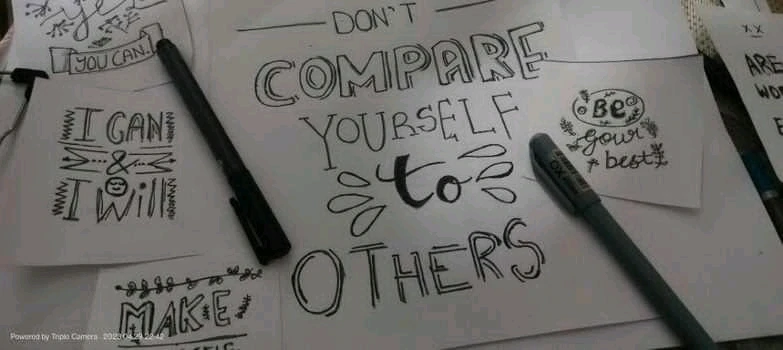 yes
YOU CAN.
I CAN
&
I Will
MAKE
DON'T
COMPARE
YOURSELF
to
OTHERS
BE
your
best
ARE
Powered by Triple Camera